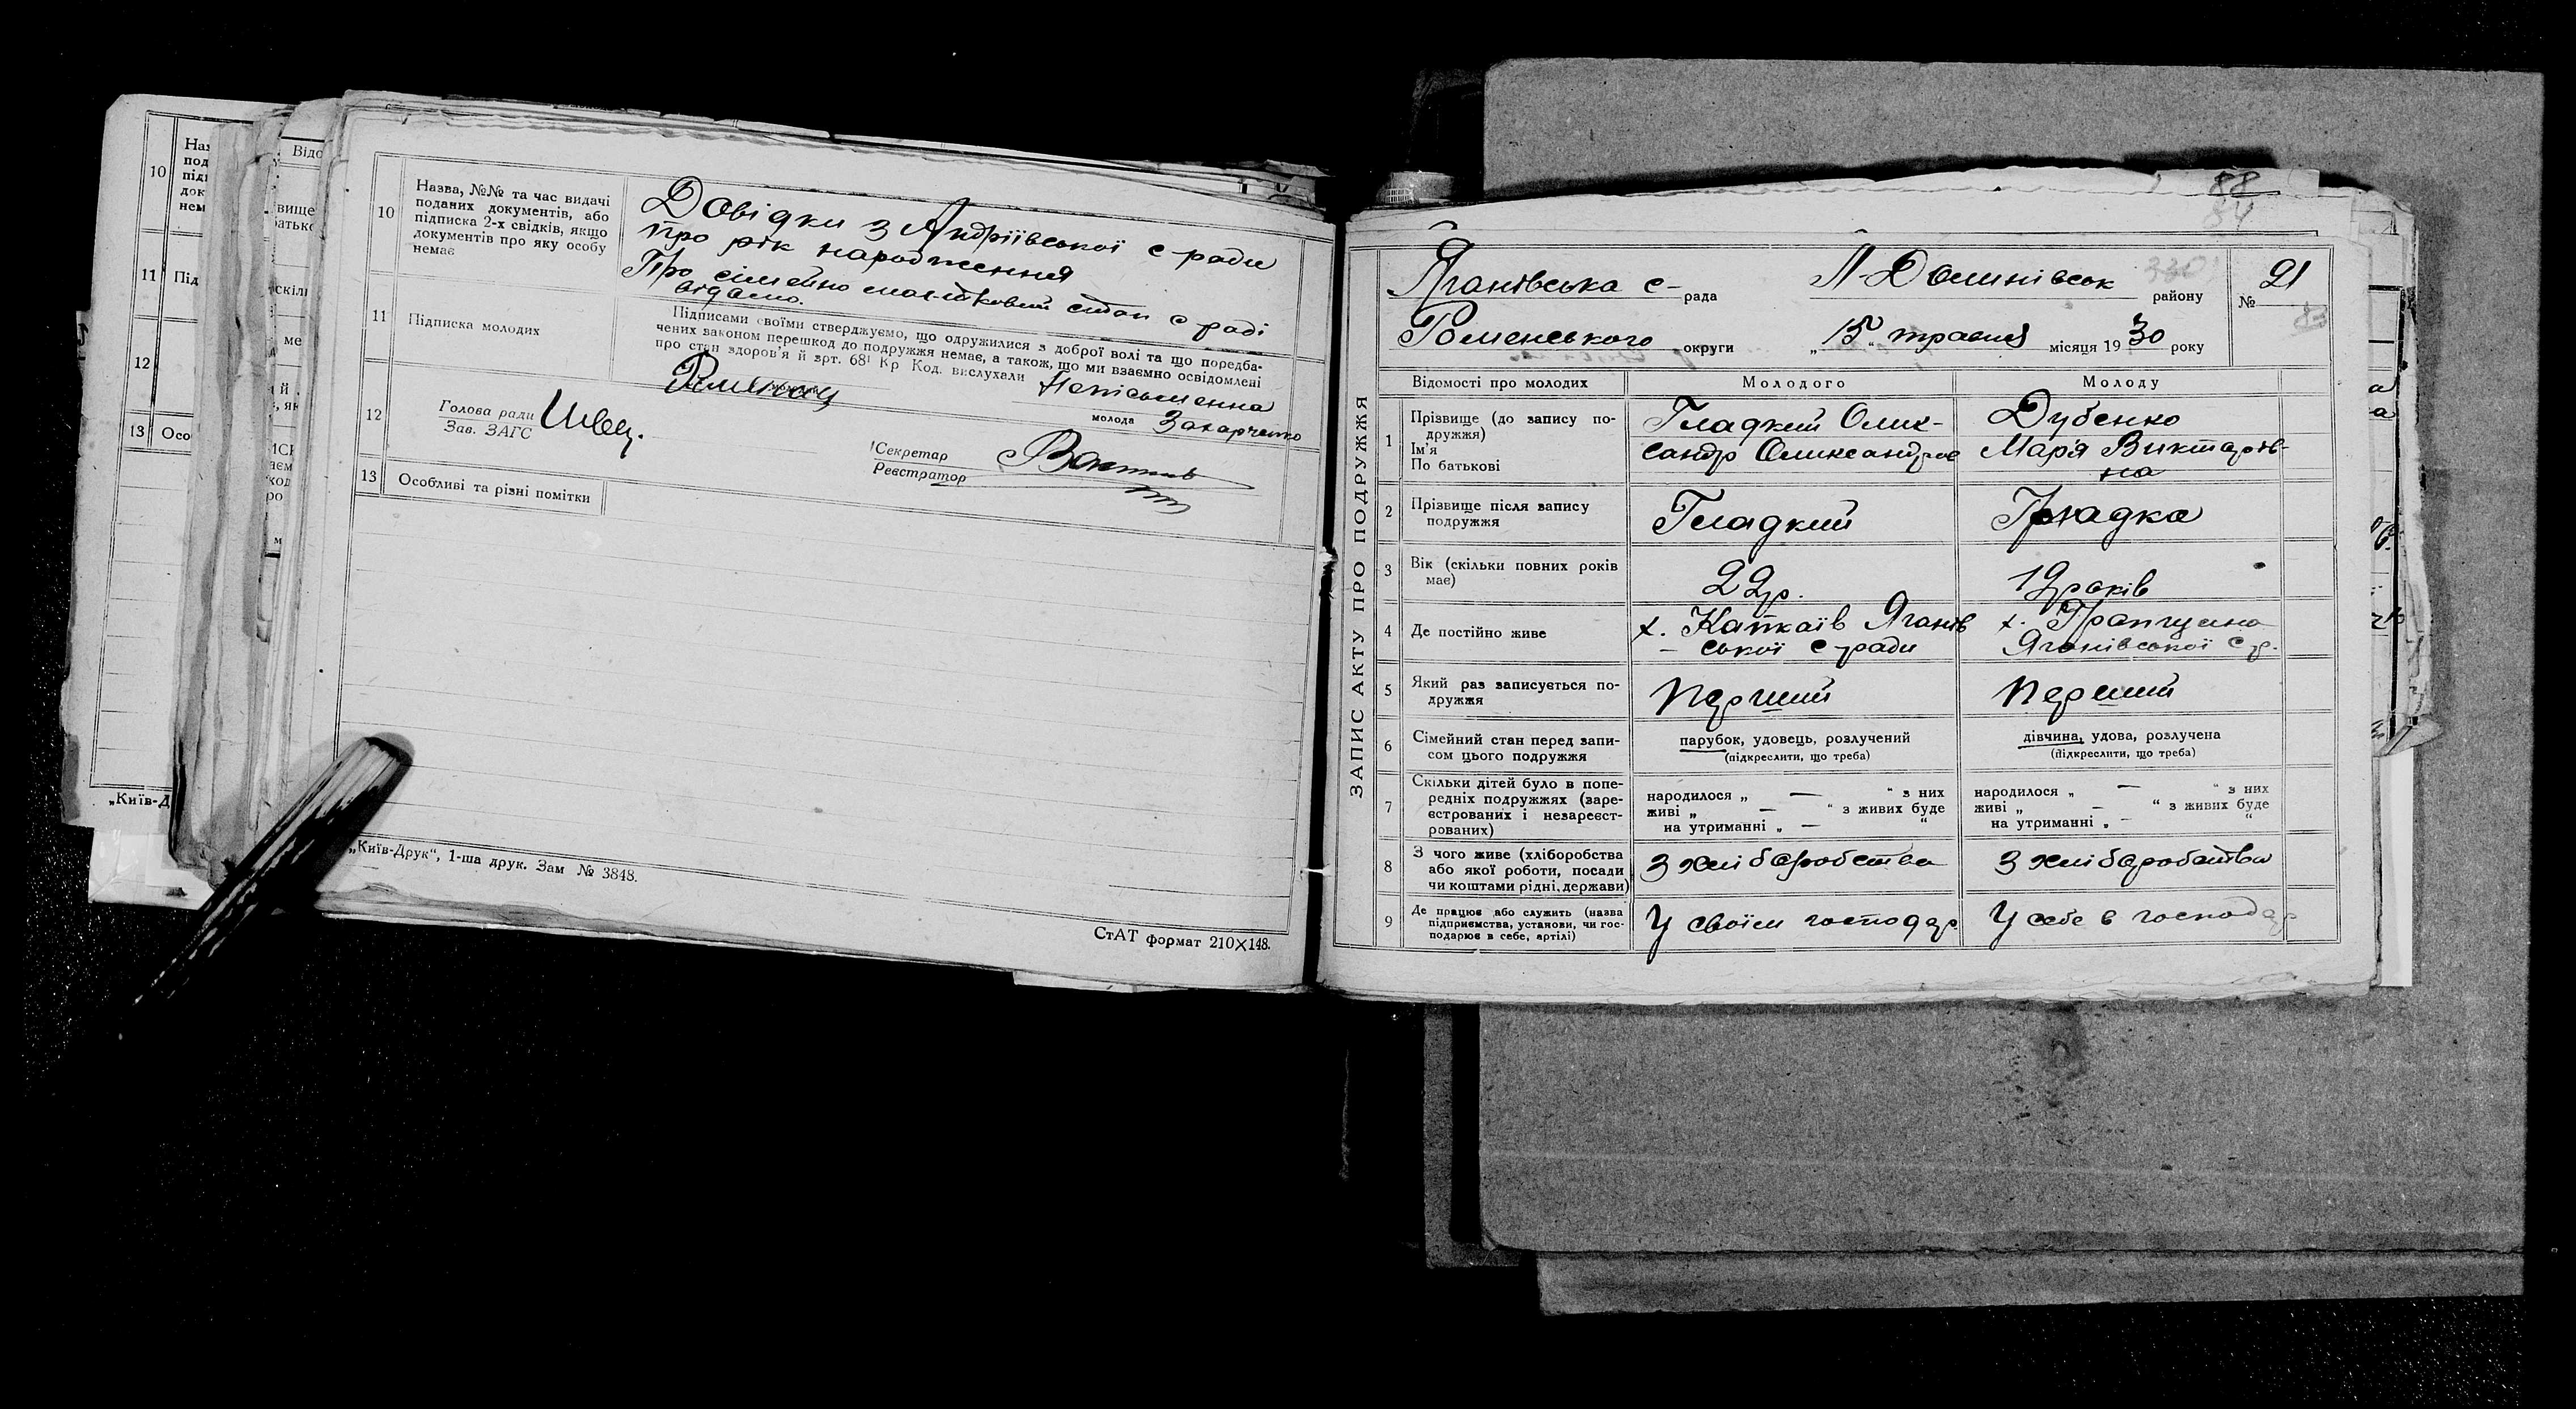 10
Наз
под
підп
док
нем
11
Під
12
13
Осо
„Київ-Д
Відо
10
Назва, №№ та час видачі
поданих документів, або
підписка 2-х свідків, якщо
документів про яку особу
немає
Довідки з Андріївської с ради
про рік народження
Про сімейно майновий стан с раді
відомо.
11
Підписка молодих
Підписами своїми стверджуємо, що одружилися з доброї волі та що передба-
чених законом перешкод до подружжя немає, а також, що ми взаємно освідомлені
про стан здоров'я й зрт. 68¹ Кр Код. вислухали
Неписьменна
молода Захарченко
12
Голова ради Швец.
Зав. ЗАГС
Секретар
Реєстратор
13
Особливі та різні помітки
„Київ-Друк“, 1-ша друк. Зам № 3848.
СтАТ формат 210×148.
88
84
ЗАПИС АКТУ ПРО ПОДРУЖЖЯ
Яганівська с- рада
Л-Долинівськ району
№ 21
Роменського округи
„15“ травня місяця 1930 року
Відомості про молодих
Молодого
Молоду
1
Прізвище (до запису по-
дружжя)
Ім'я
По батькові
Гладкий Олик-
сандр Оликсандров
Дубенко
Мар'я Викторів-
на
2
Прізвище після запису
подружжя
Гладкий
Гладка
3
Вік (скільки повних років
має)
22 р.
19 років
4
Де постійно живе
х. Капкаїв Яганів
ської с ради
х.
Яганівської с р.
5
Який раз записується по-
дружжя
Перший
Перший
6
Сімейний стан перед запи-
сом цього подружжя
парубок, удовець, розлучений
(підкреслити, що треба)
дівчина, удова, розлучена
(підкреслити, що треба)
7
Скільки дітей було в попе-
редніх подружжях (заре-
єстрованих і незареєст-
рованих)
народилося „ — “ з них
живі „ — “ з живих буде
на утриманні „ — “
народилося „ — “ з них
живі „ — “ з живих буде
на утриманні „ — “
8
З чого живе (хліборобства
або якої роботи, посади
чи коштами рідні, держави)
З хліборобства
З хліборобства
9
Де працює або служить (назва
підприємства, установи, чи гос-
подарює в себе, артілі)
У своїм господар
У себе в господар